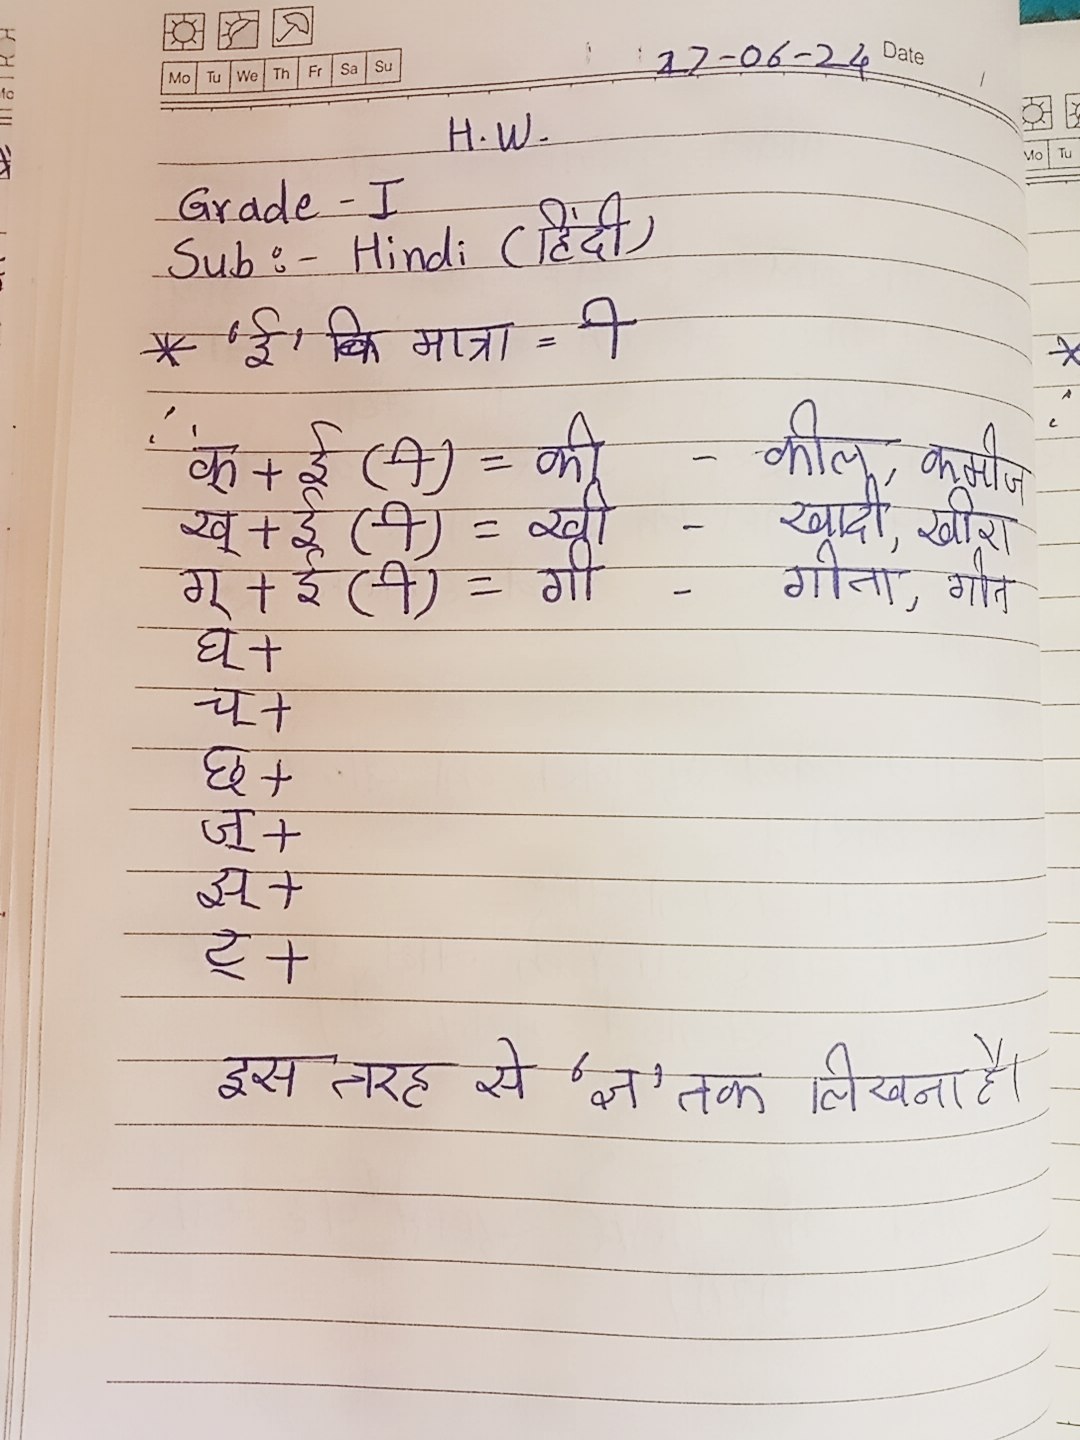 Mo Tu We Th Fr Sa Su
27-06-24 Date
H.W.
Grade - I
Sub :- Hindi (हिंदी)
* 'ई' कि मात्रा = ी
क् + ई (ी) = की - कील, कमीज
ख् + ई (ी) = खी - खादी, खीरा
ग् + ई (ी) = गी - गीता, गीत
घ् +
च् +
छ् +
ज् +
झ् +
ट् +
इस तरह से 'ज्ञ' तक लिखना है।
Mo Tu